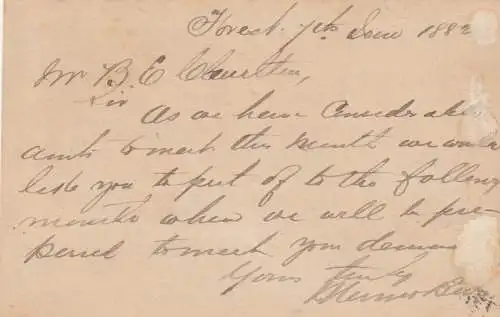 Forest 7th June 1882
Mr B. E. Charlton,
Sir
As we have Considerable
amts to meet this month we would
like you to put of to the following
months when we will be pre-
pared to meet your demand
Yours truly